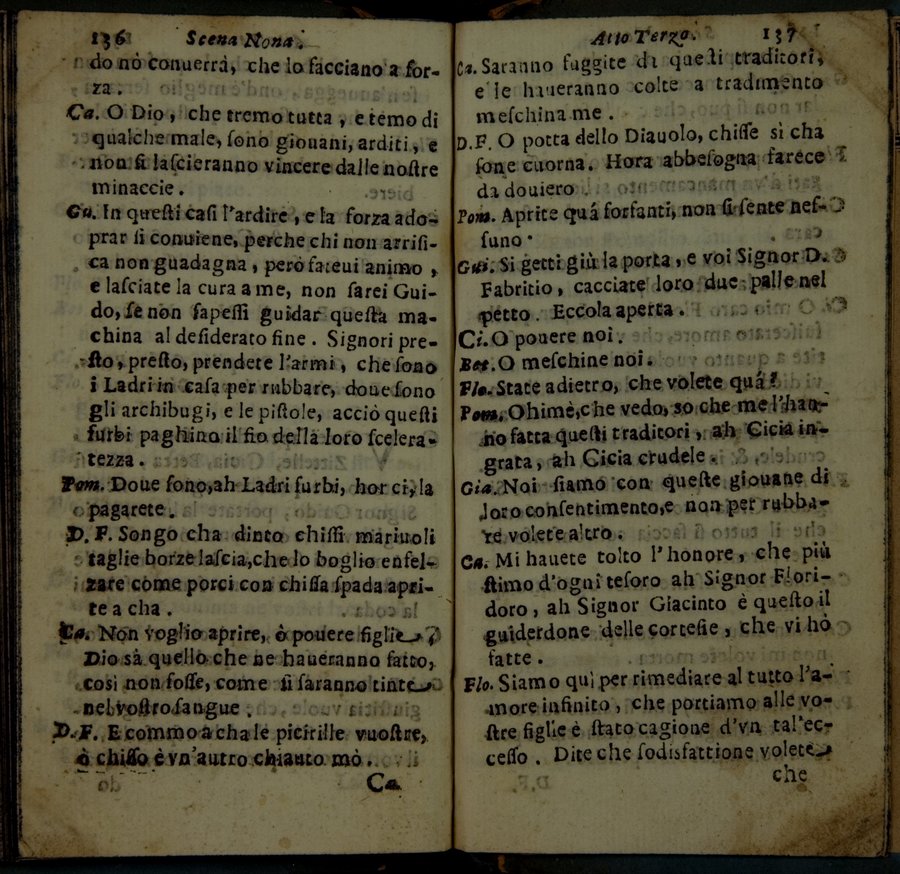 136 Scena Nona.
do nò conuerrà, che lo facciano a for-
za.
Ca. O Dio, che tremo tutta, e temo di
qualche male, sono giouani, arditi, e
non si lascieranno vincere dalle nostre
minaccie.
Gu. In questi casi l'ardire, e la forza ado-
prar si conuiene, perche chi non arrisi-
ca non guadagna, però fateui animo,
e lasciate la cura a me, non sarei Gui-
do, se non sapessi guidar questa ma-
china al desiderato fine. Signori pre-
sto, presto, prendete l'armi, che sono
i Ladri in casa per rubbare, doue sono
gli archibugi, e le pistole, acciò questi
furbi paghino il fio della loro scelera-
tezza.
Pom. Doue sono, ah Ladri furbi, hor ci, la
pagarete.
D. F. Songo cha dinto chissi mariuoli
taglie borze lascia, che lo boglio enfel-
zare come porci con chissa spada apri-
te a cha.
Ca. Non voglio aprire, ò pouere figlie,
Dio sà quello che ne haueranno fatto,
così non fosse, come si saranno tinte
nel vostro sangue.
D. F. E commo a cha le piccirille vuostre,
ò chisso è vn'autro chianto mò.
Ca.
Atto Terzo. 137
Ca. Saranno fuggite da questi traditori,
e le haueranno colte a tradimento
meschina me.
D. F. O potta dello Diauolo, chisse sì cha
sone cuorna. Hora abbesogna farece
da douiero.
Pom. Aprite quá forfanti, non si sente nes-
suno.
Gui. Si getti giù la porta, e voi Signor D.
Fabritio, cacciate loro due palle nel
petto. Eccola aperta.
Ci. O pouere noi.
Bet. O meschine noi.
Flo. State adietro, che volete quá?
Pom. Ohimè, che vedo, so che me l'han-
no fatta questi traditori, ah Cicia in-
grata, ah Cicia crudele.
Gia. Noi siamo con queste giouane di
loro consentimento, e non per rubba-
re volete altro.
Ca. Mi hauete tolto l'honore, che più
stimo d'ogni tesoro ah Signor Flori-
doro, ah Signor Giacinto è questo il
guiderdone delle cortesie, che vi hò
fatte.
Flo. Siamo quì per rimediare al tutto l'a-
more infinito, che portiamo alle vo-
stre figlie è stato cagione d'vn tal'ec-
cesso. Dite che sodisfattione volete
che